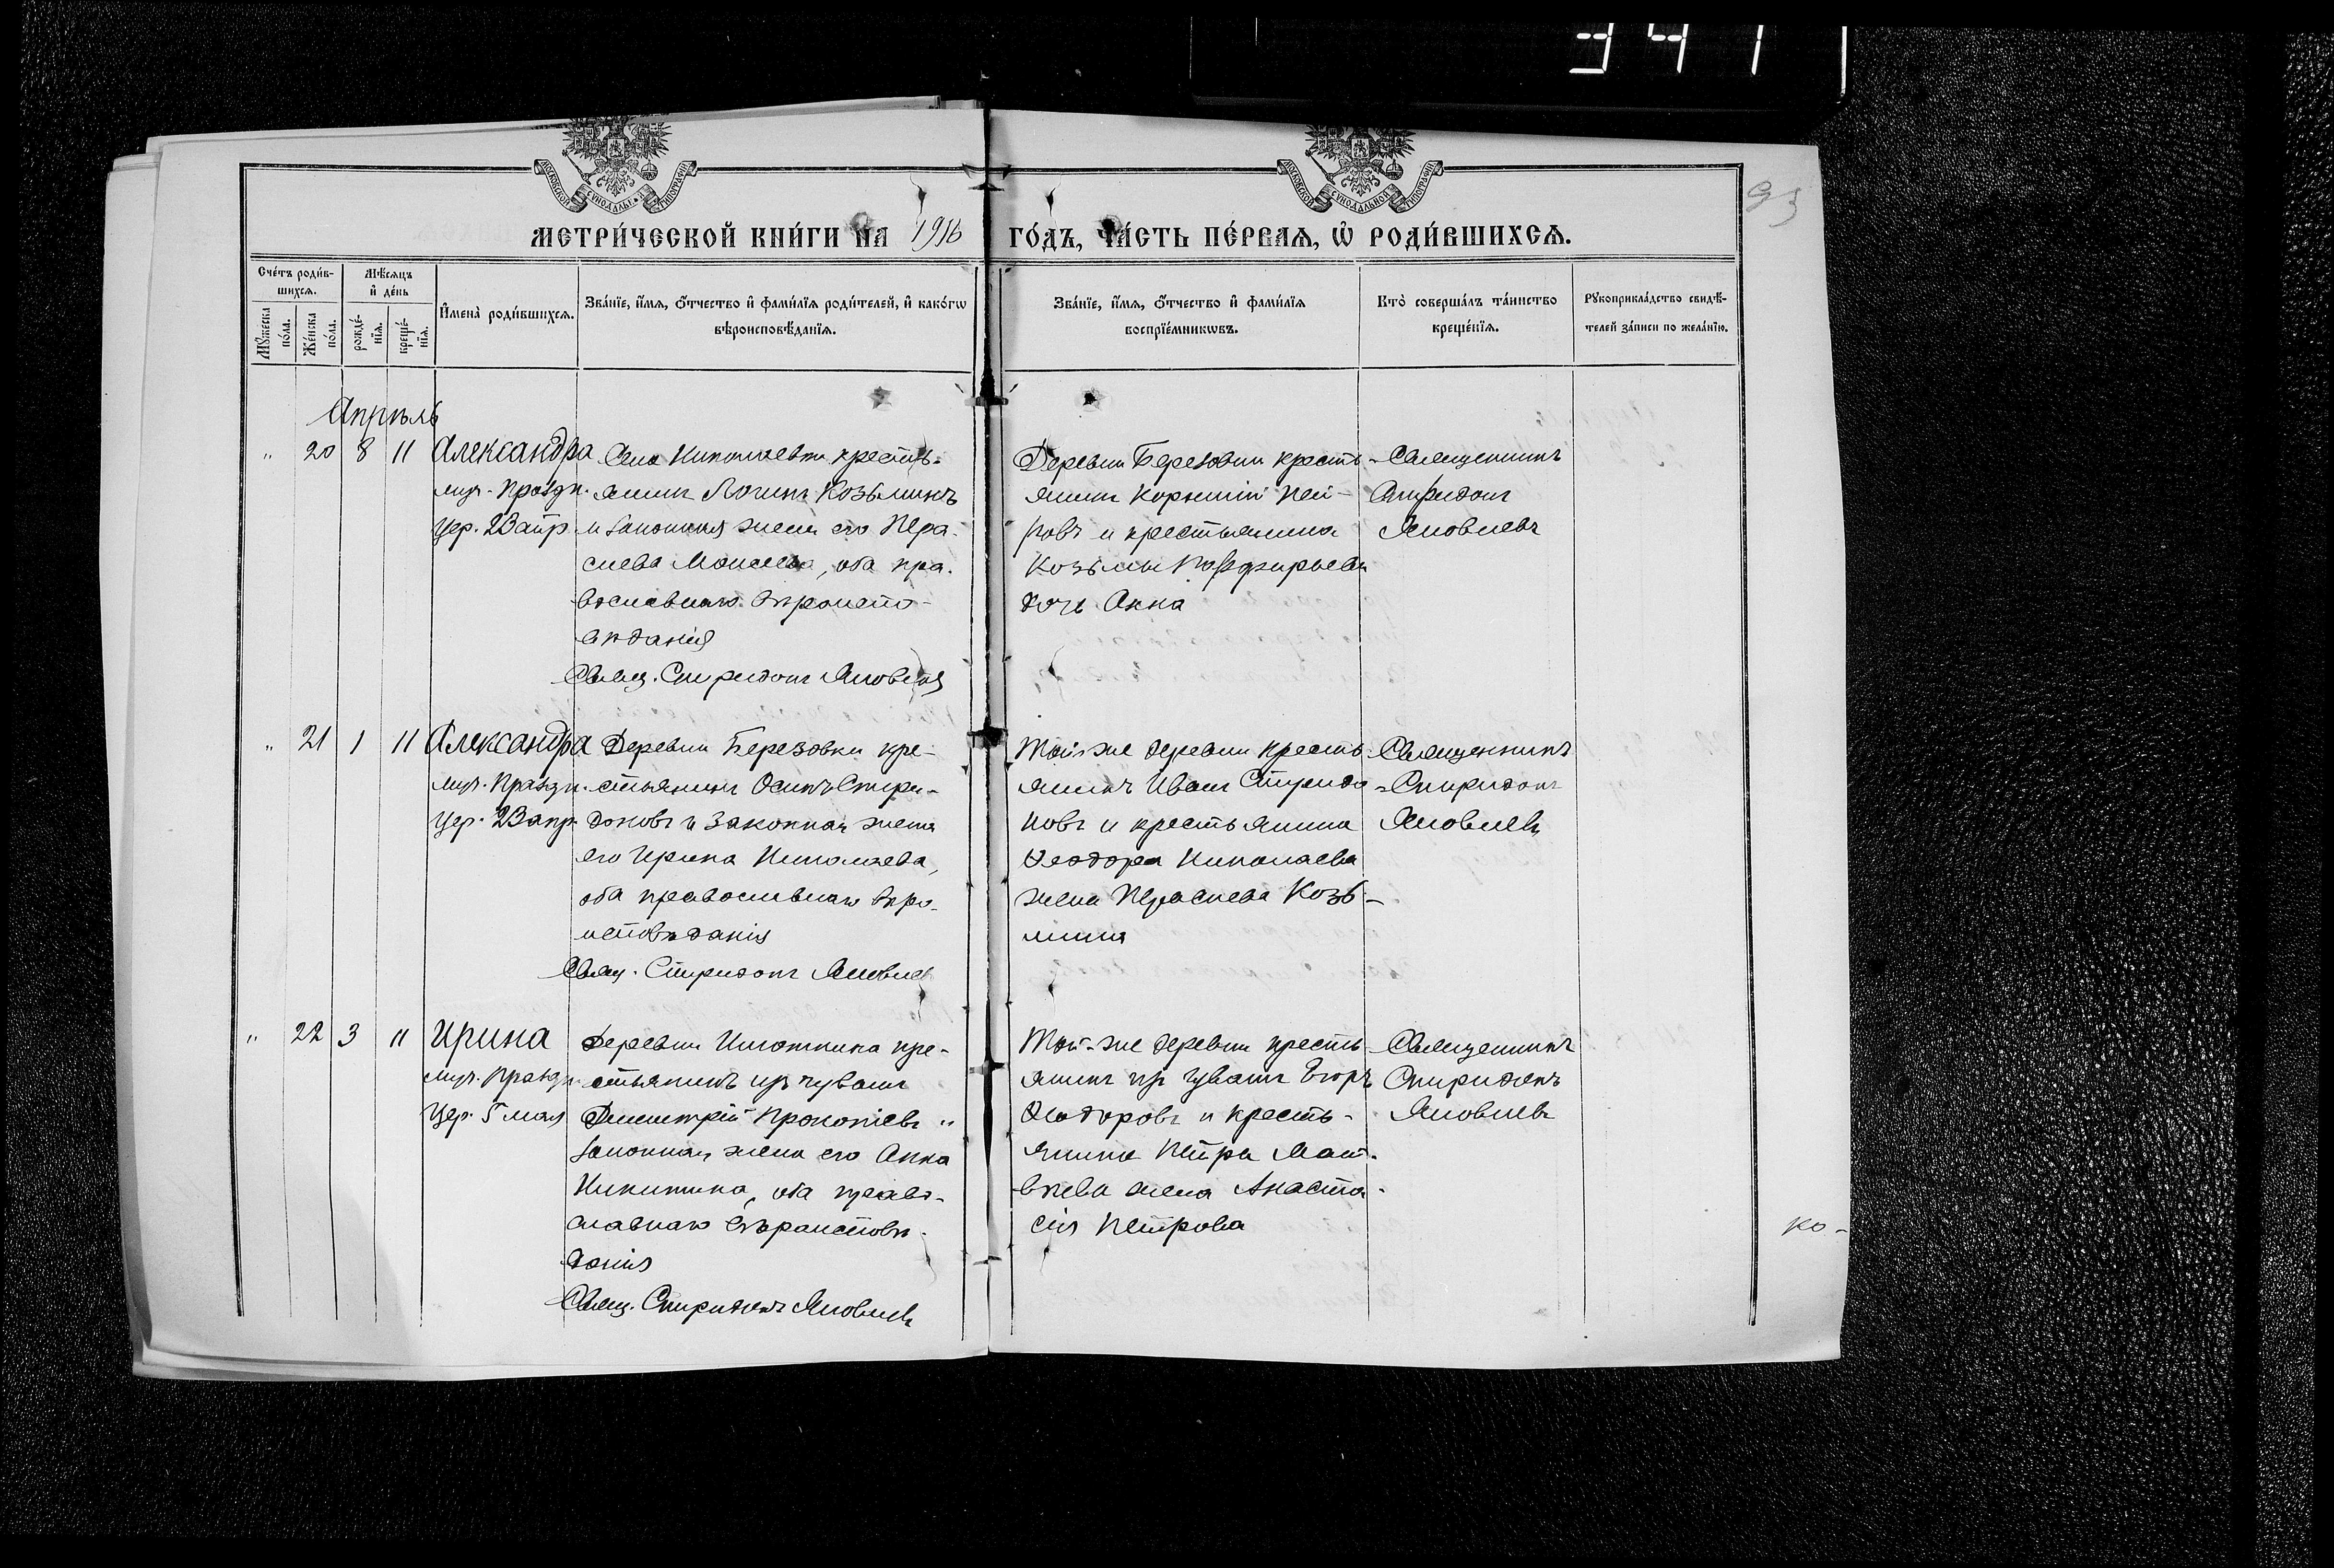 347
93
МОСКОВСКОЙ СѴНОДАЛЬНОЙ ТИПОГРАФІИ
МОСКОВСКОЙ СѴНОДАЛЬНОЙ ТИПОГРАФІИ
МЕТРИ́ЧЕСКОЙ КНИ́ГИ НА 1916 ГО́ДЪ, ЧА́СТЬ ПЕ́РВАѦ, Ѡ҆ РОДИ́ВШИХСѦ.
Сче́тъ роди́в-
шихсѧ.
Мꙋ́жеска по́ла.
Же́нска по́ла.
Мѣ́сѧцъ
и҆ де́нь
рожде́-
нїѧ.
креще́-
нїѧ.
И҆мена̀ роди́вшихсѧ.
Зва́нїе, и҆́мѧ, ѻ҆́тчество и҆ фами́лїѧ роди́телей, и҆ како́гѡ
вѣроисповѣ́данїѧ.
Зва́нїе, и҆́мѧ, ѻ҆́тчество и҆ фами́лїѧ
воспрїе́мникѡвъ.
Кто̀ соверша́лъ та́инство
креще́нїѧ.
Рꙋкоприкла́дство свидѣ́-
телей за́писи по жела́нїю.
Апрѣль
" 20 8 11 Александра
муч. Праздн.
Цер. 23 апр.
Села Николаевки кресть-
янинъ Логинъ Козьминъ
и законная жена его Пра-
сиева Моисеева, оба пра-
вославнаго вѣроиспо-
вѣданія
Свящ. Спиридонъ Яковлевъ
Деревни Березовки кресть-
янинъ Корнилій Пет-
ровъ и крестьянина
Козьмы Порфирьева
дочь Анна
Священникъ
Спиридонъ
Яковлевъ
" 21 1 11 Александра
муч. Праздн.
Цер. 23 апр.
Деревни Березовки кре-
стьянинъ Осипъ Спири-
доновъ и законная жена
его Ирина Николаева,
оба православнаго вѣро-
исповѣданія
Свящ. Спиридонъ Яковлевъ
Той-же деревни кресть-
янинъ Иванъ Спиридо-
новъ и крестьянина
Ѳеодора Николаева
жена Прасиева Козь-
мина
Священникъ
Спиридонъ
Яковлевъ
" 22 3 11 Ирина
муч. Праздн.
Цер. 5 мая
Деревни Игнашкина кре-
стьянинъ изъ чувашъ
Димитрій Прокопіевъ и
законная жена его Анна
Никитина, оба право-
славнаго вѣроисповѣ-
данія
Свящ. Спиридонъ Яковлевъ
Той-же деревни кресть-
янинъ изъ чувашъ Егоръ
Ѳеодоровъ и кресть-
янина Петра Мат-
вѣева жена Анаста-
сія Петрова
Священникъ
Спиридонъ
Яковлевъ
ко-